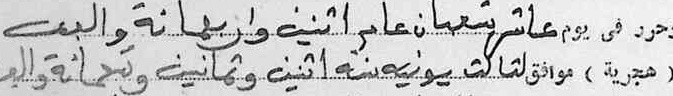 وحرر في يوم عاشر شعبان عام اثنين واربعمائة والف
( هجرية ) موافق لثالث يونيه سنة اثنين وثمانين وتسعمائة والف